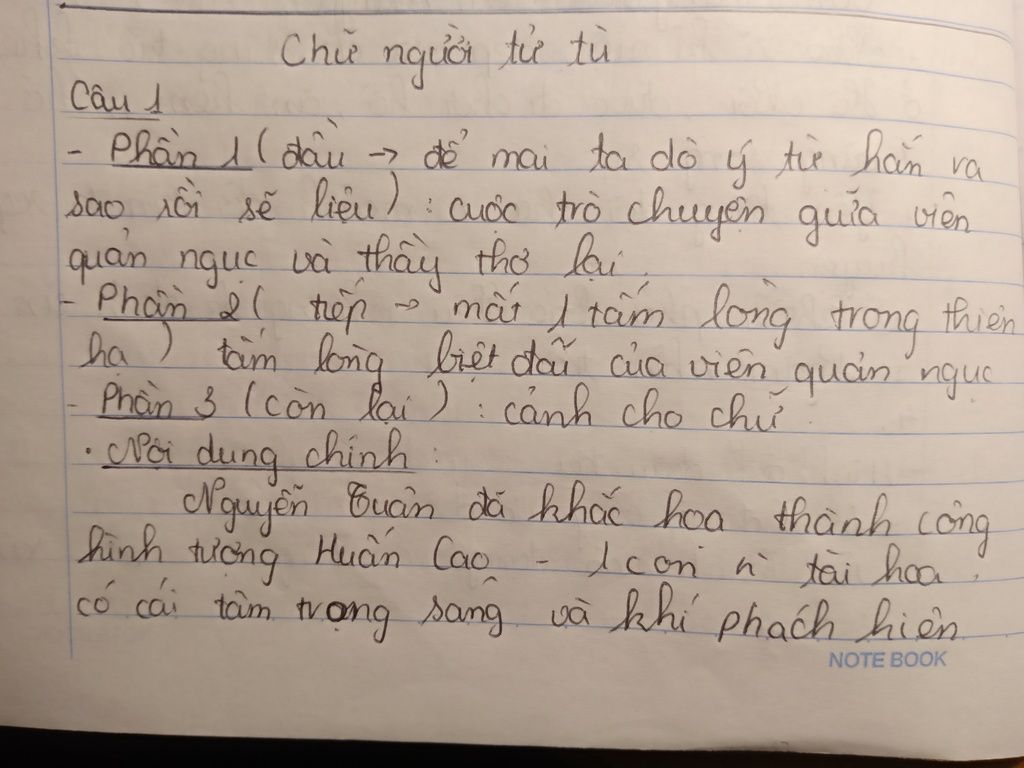 Chữ người tử tù
Câu 1
- Phần 1 ( đầu → để mai ta dò ý tứ hắn ra
sao rồi sẽ liệu ) : cuộc trò chuyện giữa viên
quản ngục và thầy thơ lại.
- Phần 2 ( tiếp → mất 1 tấm lòng trong thiên
hạ ) tấm lòng biệt đãi của viên quản ngục
- Phần 3 ( còn lại ) : cảnh cho chữ.
. Nội dung chính :
Nguyễn Tuân đã khắc họa thành công
hình tượng Huấn Cao - 1 con n` tài hoa,
có cái tâm trọng sáng và khí phách hiên
NOTE BOOK